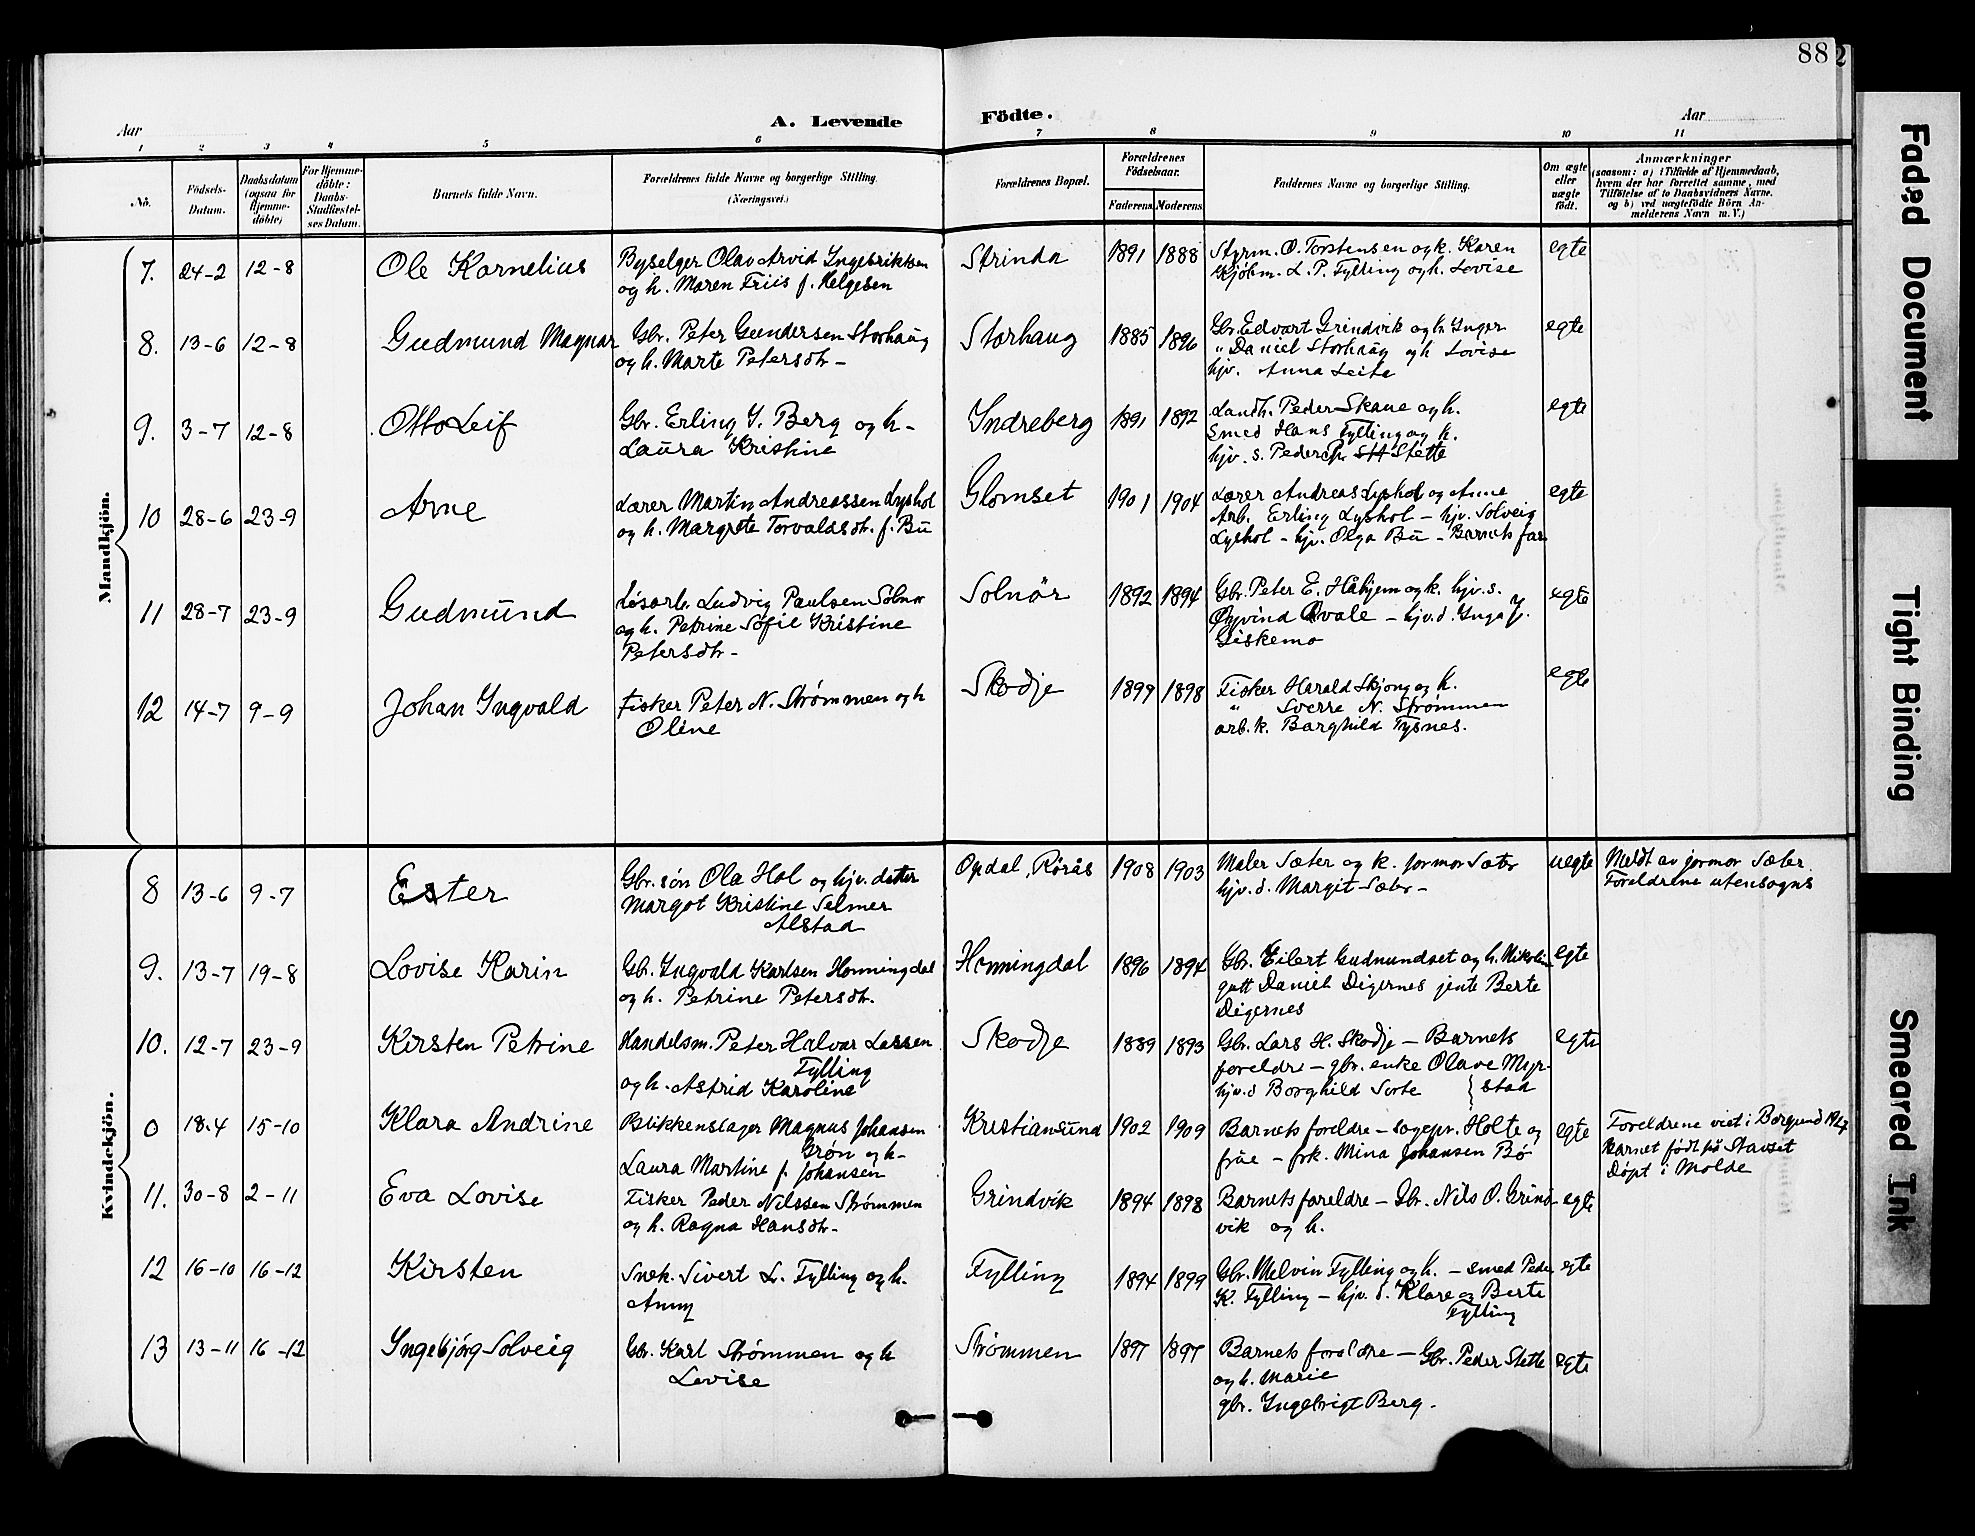 88 2
Aar
A. Levende Födte.
Aar
1 2 3 4 5 6 7 8 9 10 11
No. Födsels-Datum. Daabsdatum (ogsaa for Hjemme-döbte) For Hjemme-döbte: Daabs-Stadfæstel-ses Datum. Barnets fulde Navn. Forældrenes fulde Navne og borgerlige Stilling. (Næringsvei.) Forældrenes Bopæl. Forældrenes Födselsaar. Faderens Moderens Faddernes Navne og borgerlige Stilling. Om ægte eller uægte födt. Anmærkninger (saasom: a) i Tilfælde af Hjemmedaab, hvem der har forrettet samme, med Tilföielse af to Daabsvidners Navne. og b) ved uægtefödte Börn An-melderens Navn m. V.)
Mandkjön.
7. 24-2 12-8 Ole Kornelius Byselger Olav Arvid Ingebriktsen Strinda 1891 1888 Styrm. O. Torstensen og k. Karen egte
og h. Maren Friis f. Helgesen Kjøbm. L. P. Fylling og h. Lovise
8. 13-6 12-8 Gudmund Magnar Gbr. Peter Gundersen Storhaug Storhaug 1885 1896 Gbr. Edvart Grindvik og h. Inger egte
og h. Marte Petersdtr - " Daniel Storhaug og h Lovise
hjv. Anna Leite
9. 3-7 12-8 Otto Leif Gbr. Erling I. Berg og h - Indreberg 1891 1892 Landh. Peder Skane og h. egte
Laura Kristine Smed Hans Fylling og k.
hjv. s. Peder Stette
10 28-6 23-9 Arne Lærer Martin Andreassen Lyshol Glomset 1901 1904 Lærer Andreas Lyshol og Anne egte
og h. Margrete Torvaldsdtr. f. Bu Arb. Erling Lyshol - hjv. Solveig
Lyshol - hjv. Olga Bu - Barnets far
11 28-7 23-9 Gudmund Løsarb. Ludvig Paulsen Solnør Solnör 1892 1894 Gbr. Peter E. Håhjem og k. hjv. s. egte
og h. Petrine Sofie Kristine Øyvind Kvale - hjv. d. Inga J.
Petersdtr - Giskemo
12 14-7 9-9 Johan Ingvald Fisker Peter N. Strømmen og h Skodje 1899 1898 Fisker Harald Skjong og h. egte
Oline " Sverre N. Strømmen
arb. k. Borghild Tysnes.
Kvindekjön.
8 13-6 9-7 Ester Gbr. søn Ola Hol og hjv. datter Opdal, Rørås 1908 1903 Maler Sæter og k. formor Sæter uegte Meldt av formor Sæter
Margot Kristine Selmer hjv. d. Margit Sæter - Foreldrene utensogns
Alstad
9. 13-7 19-8 Lovise Karin Gbr. Ingvald Karlsen Honningdal Honningdal 1896 1894 Gbr. Eilert Gudmundset og h. Nikoline egte
og h. Petrine Petersdtr. gutt Daniel Digernes jente Berte
Digernes
10. 12-7 23-9 Kirsten Petrine Handelsm. Peter Halvor Larsen Skodje 1889 1893 Gbr. Lars H. Skodje - Barnets egte
Fylling foreldre - gbr. enke Olave Myr-
og h. Astrid Karoline hjv. d Borghild Sorte { stad
0 18.4 15-10 Klara Andrine Blikkenslager Magnus Johansen Kristiansund 1902 1909 Barnets foreldre - sogepr. Holte og egte Foreldrene viet i Borgund 1927
Grøn og h - frue - frk. Mina Johansen Bø Barnet født på Stavset
Laura Martine f. Johansen Døpt i Molde
11. 30-8 2-11 Eva Lovise Fisker Peder Nilssen Strømmen Grindvik 1894 1898 Barnets foreldre - Gbr. Nils O. Grind- egte
og h. Ragna Hansdtr - vik og h.
12 16-10 16-12 Kirsten Snek. Sivert L. Fylling og h. Fylling 1894 1899 Gbr. Melvin Fylling og h. - smed Peder egte
Anny K. Fylling - hjv. d. Klare og Berte
Fylling
13 13-11 16-12 Ingebjørg Solveig Gbr. Karl Strømmen og h Strømmen 1897 1897 Barnets foreldre - Gbr. Peder Stette egte
Lovise og h. Marie
gbr. Ingebrigt Berg -
Faded Document
Tight Binding
Smeared Ink